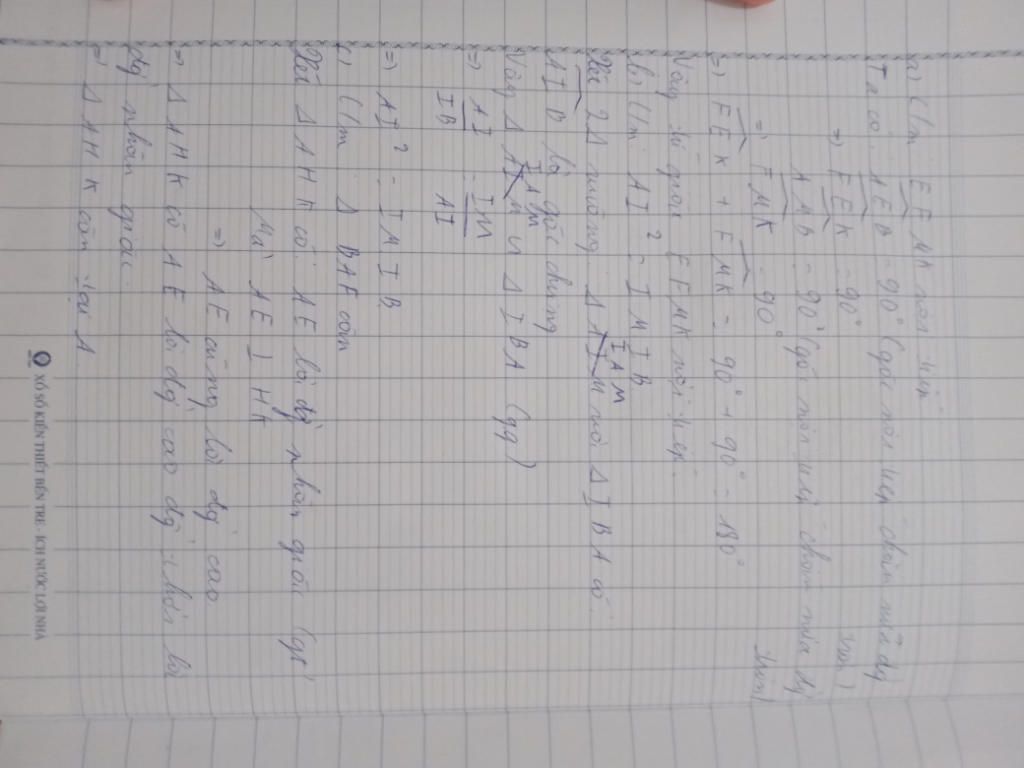 a) C/m EFMK nội tiếp
Ta có: AEB = 90° (góc nội tiếp chắn nửa đg
tròn)
⇒ FEK = 90°
AMB = 90° (góc nội tiếp chắn nửa đg
tròn)
⇒ FMK = 90°
⇒ FEK + FMK = 90° + 90° = 180°
Vậy tứ giác EFMK nội tiếp.
b) C/m AI² = IM IB
Xét 2Δ vuông Δ IAM với Δ IBA có:
AIB là góc chung
Vậy Δ IAM ∽ Δ IBA (gg)
⇒ AI/IB = IM/AI
⇒ AI² = IM IB
c) C/m Δ BAF cân
Xét Δ AHK có: AE là đg phân giác (gt)
Mà AE ⊥ HK
⇒ AE cũng là đg cao
⇒ Δ AHK có AE là đg cao đg thời là
đg phân giác.
⇒ Δ AHK cân tại A.
XỔ SỐ KIẾN THIẾT BẾN TRE - ÍCH NƯỚC LỢI NHÀ